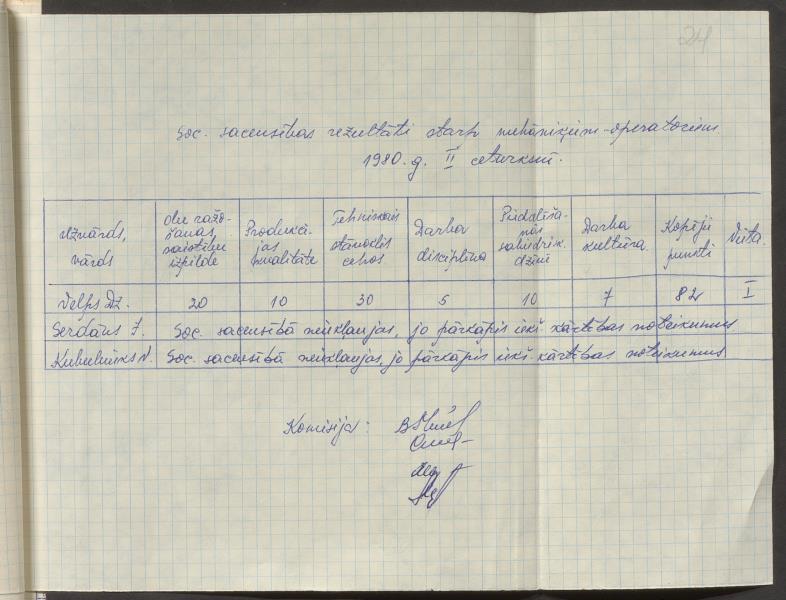 24
Soc. sacensības rezultāti starp mehāniķiem-operatoriem
1980. g. II ceturksnī.
Uzvārds, vārds
ražošanas saistību izpilde
Produkcijas kvalitāte
Tehniskais stāvoklis cehos
Darba disciplīna
Piedalīšanās sabiedrisk. dzīvē
Darba kultūra
Kopējie punkti
Vieta.
Velps Dz. 20 10 30 5 10 7 82 I
Serdāns J. Soc. sacensībā neiekļaujas, jo pārkāpis iekš. kārtības noteikumus
Soc. sacensībā neiekļaujas, jo pārkāpis iekš. kārtības noteikumus
Komisija: